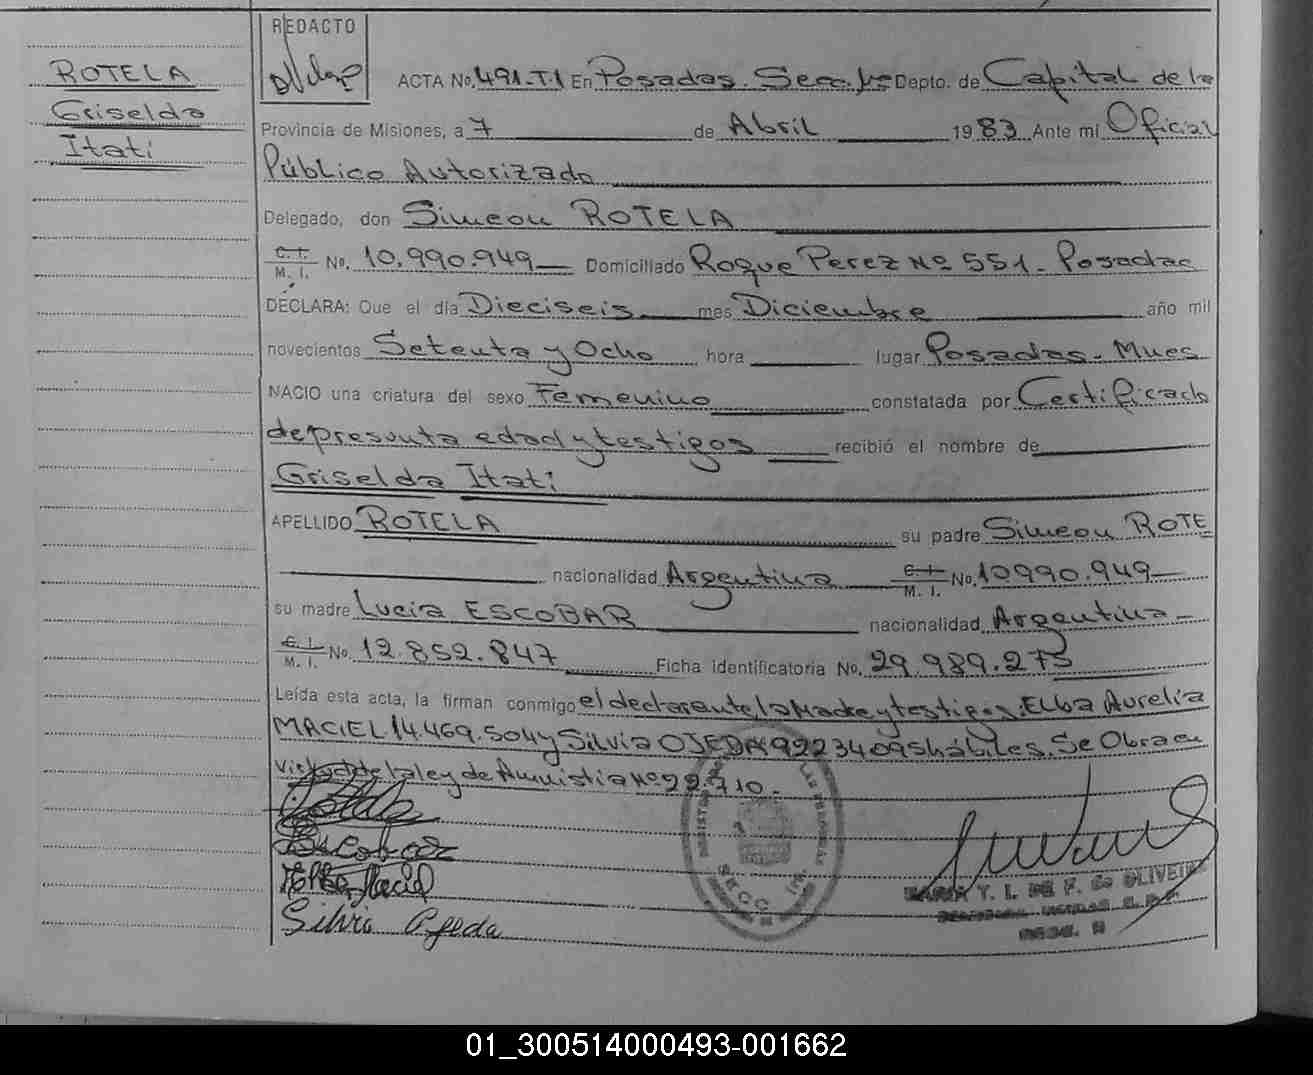 REDACTO
ROTELA
Griselda
Itatí
ACTA No. 491.T.1 En Posadas. Secc. 1ra Depto. de Capital de la
Provincia de Misiones, a 7 de Abril 1983 Ante mí Oficial
Público Autorizado
Delegado, don Simeon ROTELA
C. I.
M. I. No. 10.990.949 Domiciliado Roque Perez Nº 551. Posadas
DECLARA: Que el día Dieciseis mes Diciembre año mil
novecientos Setenta y Ocho hora lugar Posadas. Mnes
NACIO una criatura del sexo Femenino constatada por Certificado
de presunta edad y testigos recibió el nombre de
Griselda Itatí
APELLIDO ROTELA su padre Simeon ROTE
nacionalidad Argentina C. I.
M. I. No. 10990.949
su madre Lucia ESCOBAR nacionalidad Argentina
C. I.
M. I. No. 12.852.847 Ficha identificatoria No. 29.989.275
Leída esta acta, la firman conmigo el declarante la Madre y testigos. Elba Aurelia
MACIEL 14.469.504 y Silvia OJEDA 92234095 hábiles. Se Obra en
Virtud de la ley de Amnistia Nº 22.710.
Escobar
Elba Maciel
Silvia Ojeda
SECC. 1ra.
MARIA T. I. DE F. de OLIVEIRA
01_300514000493-001662